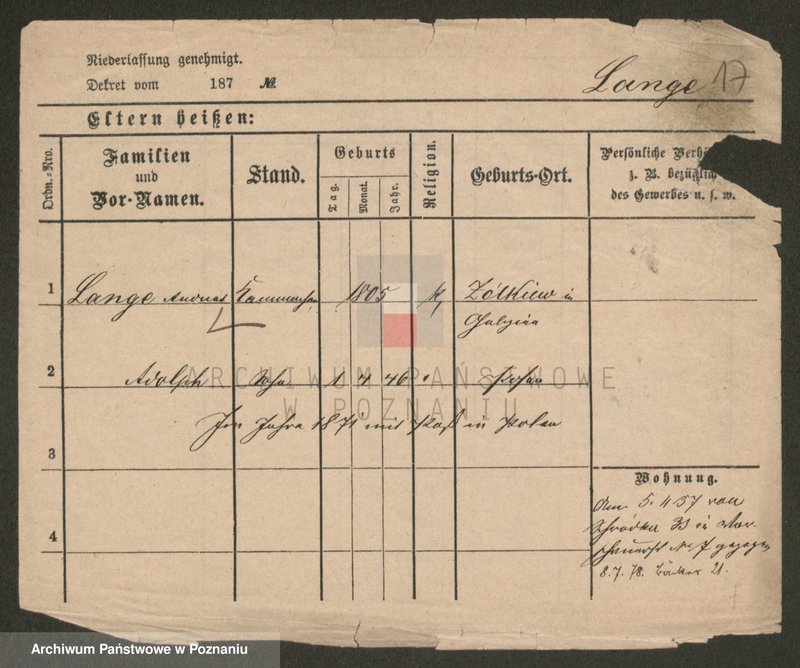 Niederlassung genehmigt.
Dekret vom 187 №
Lange 17
Eltern heißen:
Ordn.-Nro.
Familien
und
Vor-Namen.
Stand.
Geburts
Tag.
Monat.
Jahr.
Religion.
Geburts-Ort.
Persönliche Verhä
z. B. bezüglich
des Gewerbes u. s. w.
1 Lange Andreas 1805 k, Zólkiew in
Galizien
2 Adolph Sohn 1 4 46 Posen
ARCHIWUM PAŃSTWOWE
W POZNANIU
Im Jahre 1871 mit Paß in Polen
3
Wohnung.
Am 5. 4 57 von
Schrodka 33 in
4
No 7 gezogen
8. 7. 78. 21.
Archiwum Państwowe w Poznaniu